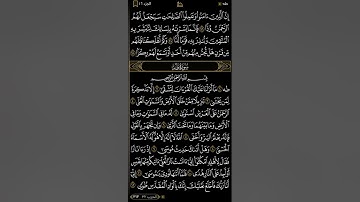 طه الجزء ١٦
إِنَّ ٱلَّذِينَ ءَامَنُواْ وَعَمِلُواْ ٱلصَّٰلِحَٰتِ سَيَجْعَلُ لَهُمُ
ٱلرَّحْمَٰنُ وُدًّا ٩٦ فَإِنَّمَا يَسَّرْنَٰهُ بِلِسَانِكَ لِتُبَشِّرَ بِهِ
ٱلْمُتَّقِينَ وَتُنذِرَ بِهِۦ قَوْمًا لُّدًّا ٩٧ وَكَمْ أَهْلَكْنَا قَبْلَهُم
مِّن قَرْنٍ هَلْ تُحِسُّ مِنْهُم مِّنْ أَحَدٍ أَوْ تَسْمَعُ لَهُمْ رِكْزًۢا ٩٨
سُورَةُ طه
بِسْمِ ٱللَّهِ ٱلرَّحْمَٰنِ ٱلرَّحِيمِ
طه ١ مَآ أَنزَلْنَا عَلَيْكَ ٱلْقُرْءَانَ لِتَشْقَىٰٓ ٢ إِلَّا تَذْكِرَةً
لِّمَن يَخْشَىٰ ٣ تَنزِيلًا مِّمَّنْ خَلَقَ ٱلْأَرْضَ وَٱلسَّمَٰوَٰتِ ٱلْعُلَى ٤
ٱلرَّحْمَٰنُ عَلَى ٱلْعَرْشِ ٱسْتَوَىٰ ٥ لَهُۥ مَا فِي ٱلسَّمَٰوَٰتِ وَمَا فِي
ٱلْأَرْضِ وَمَا بَيْنَهُمَا وَمَا تَحْتَ ٱلثَّرَىٰ ٦ وَإِن تَجْهَرْ بِٱلْقَوْلِ
فَإِنَّهُۥ يَعْلَمُ ٱلسِّرَّ وَأَخْفَى ٧ ٱللَّهُ لَآ إِلَٰهَ إِلَّا هُوَ لَهُ ٱلْأَسْمَآءُ
ٱلْحُسْنَىٰ ٨ وَهَلْ أَتَىٰكَ حَدِيثُ مُوسَىٰٓ ٩ إِذْ رَءَا نَارًا
فَقَالَ لِأَهْلِهِ ٱمْكُثُوٓاْ إِنِّيٓ ءَانَسْتُ نَارًا لَّعَلِّيٓ ءَاتِيكُم مِّنْهَا بِقَبَسٍ
أَوْ أَجِدُ عَلَى ٱلنَّارِ هُدًى ١٠ فَلَمَّآ أَتَىٰهَا نُودِيَ يَٰمُوسَىٰٓ ١١ إِنِّيٓ
أَنَا۠ رَبُّكَ فَٱخْلَعْ نَعْلَيْكَ إِنَّكَ بِٱلْوَادِ ٱلْمُقَدَّسِ طُوًى ١٢